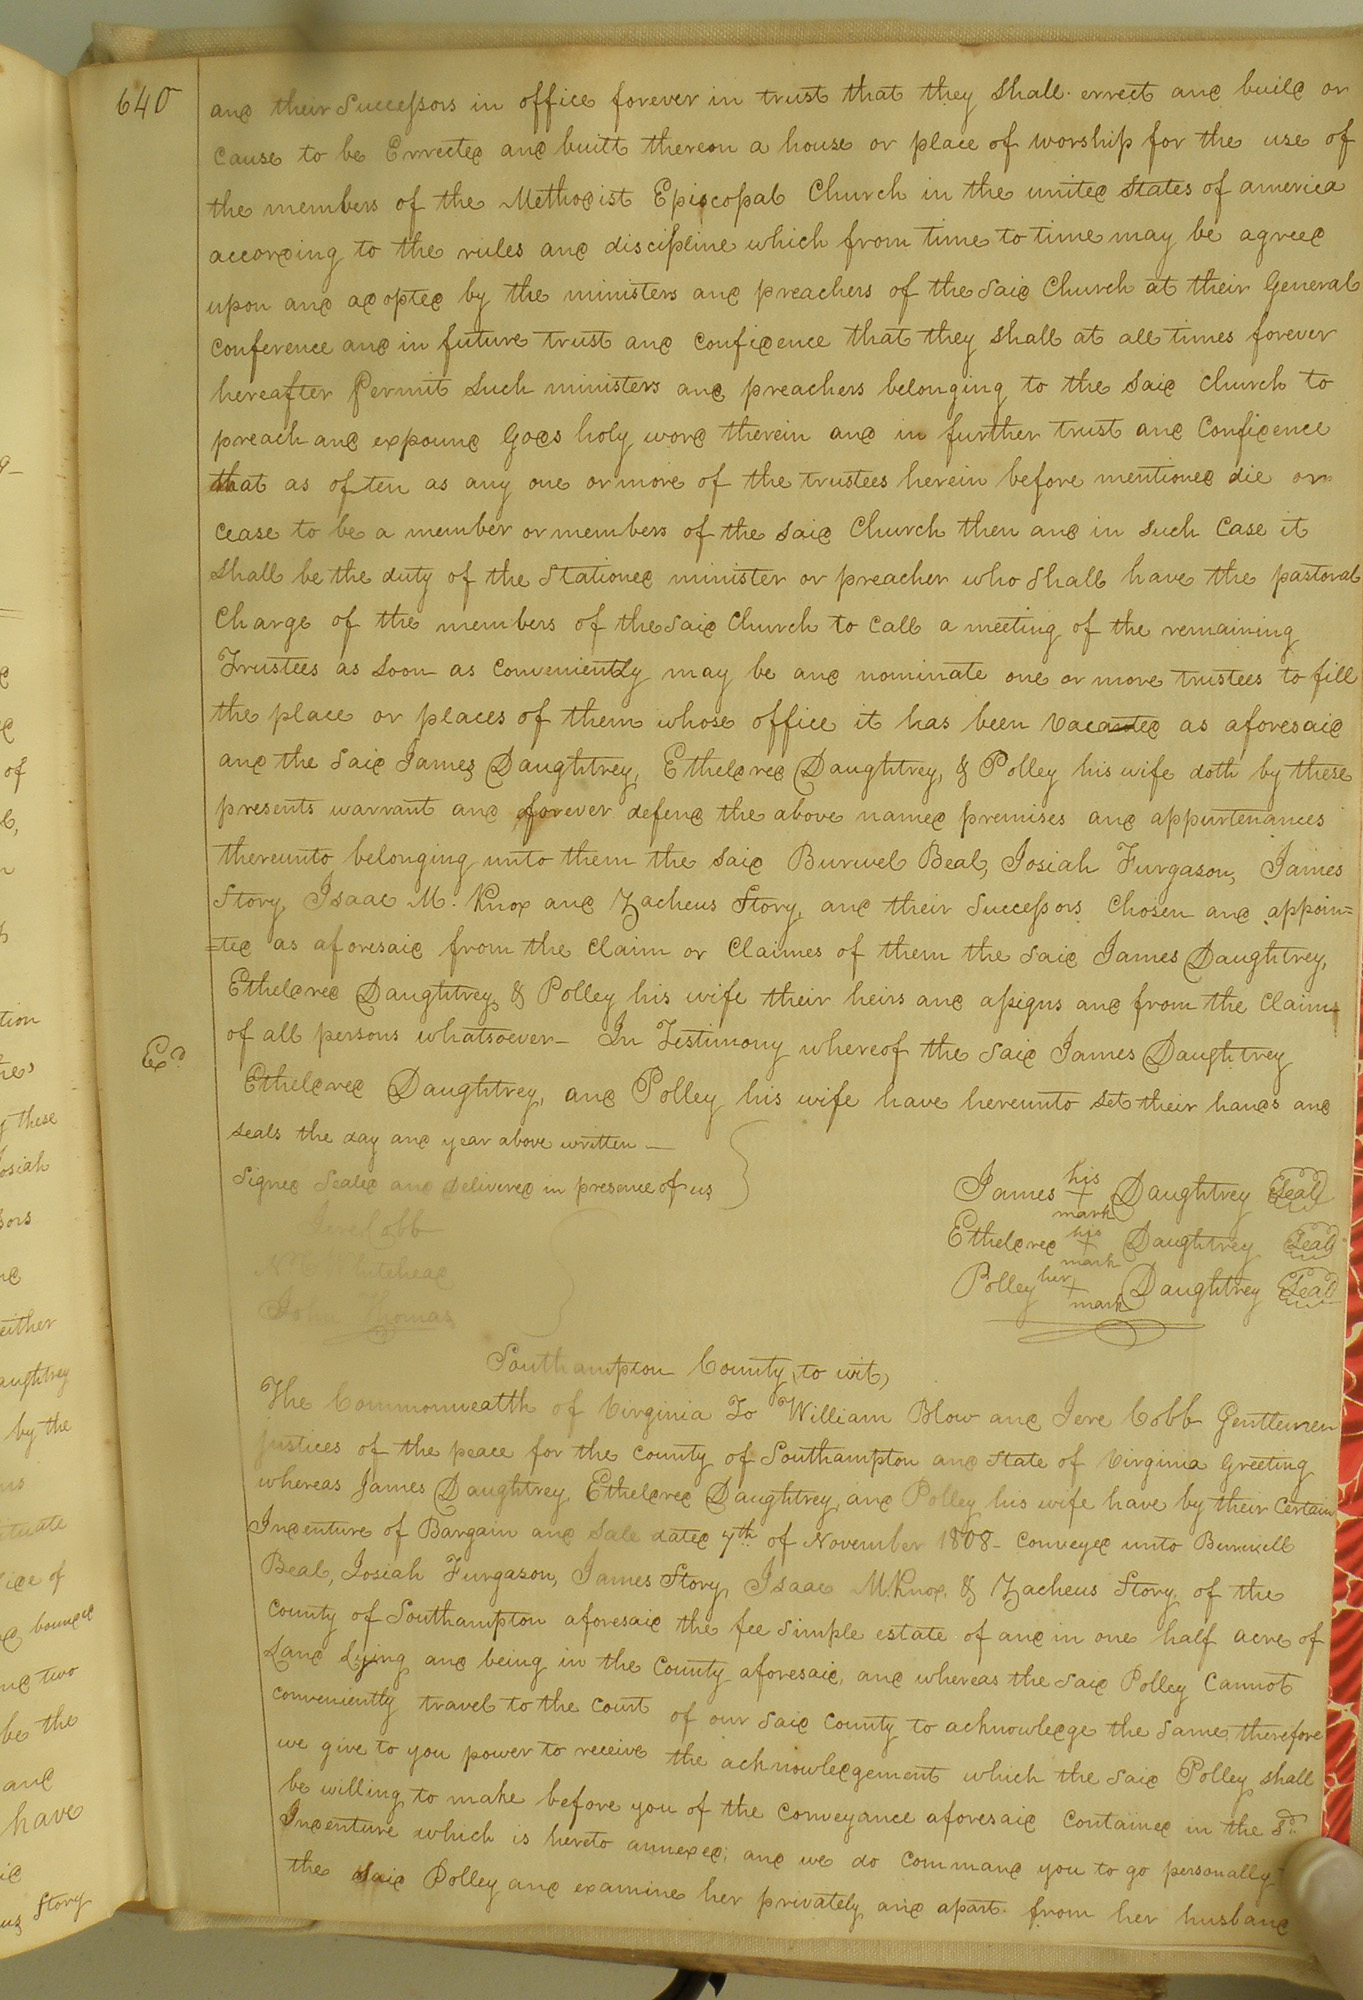 640
and their Successors in office forever in trust that they shall errect and build or
cause to be Errected and built thereon a house or place of worship for the use of
the members of the Methodist Episcopal Church in the united States of america
according to the rules and discipline which from time to time may be agreed
upon and adopted by the ministers and preachers of the said Church at their General
conference and in future trust and confidence that they shall at all times forever
hereafter Permit such ministers and preachers belonging to the said church to
preach and expound Gods holy word therein and in further trust and Confidence
that as often as any one or more of the trustees herein before mentioned die or
cease to be a member or members of the said Church then and in such Case it
shall be the duty of the Stationed minister or preacher who shall have the pastoral
Charge of the members of the said Church to call a meeting of the remaining
Trustees as soon as conveniently may be and nominate one or more trustees to fill
the place or places of them whose office it has been vacated as aforesaid
and the said James Daughtrey, Etheldred Daughtrey, & Polley his wife doth by these
presents warrant and forever defend the above named premises and appurtenances
thereunto belonging unto them the said Burwel Beal, Josiah Furgason, James
Story, Isaac M. Knox and Zacheus Story, and their Successors Chosen and appoin=
=ted as aforesaid from the claim or Claimes of them the said James Daughtrey,
Etheldred Daughtrey & Polley his wife their heirs and assigns and from the Claims
of all persons whatsoever- In Testimony whereof the said James Daughtrey
Exd
Etheldred Daughtrey, and Polley his wife have hereunto set their hands and
seals the day and year above written —
Signed Sealed and Delivered in presence of us
James his + mark Daughtrey Seal
Jere Cobb
Etheldred his + mark Daughtrey Seal
Whitehead
Polley her + mark Daughtrey Seal
John Thomas
Southampton County, to wit,
The Commonwealth of Virginia To William Blow and Jere Cobb Gentlemen
justices of the peace for the county of Southampton and State of Virginia Greeting
whereas James Daughtrey, Etheldred Daughtrey, and Polley his wife have by their Certain
Indenture of Bargain and Sale dated 7th of November 1808- conveyed unto Burwell
Beal, Josiah Furgason, James Story, Isaac M. Knox, & Zacheus Story, of the
County of Southampton aforesaid the fee simple estate of and in one half acre of
Land Lying and being in the County aforesaid, and whereas the said Polley Cannot
conveniently travel to the court of our said County to acknowledge the same, therefore
we give to you power to receive the acknowledgement which the said Polley shall
be willing to make before you of the Conveyance aforesaid Contained in the sd
Indenture which is hereto annexed; and we do command you to go personally
the said Polley and examine her privately and apart from her husband